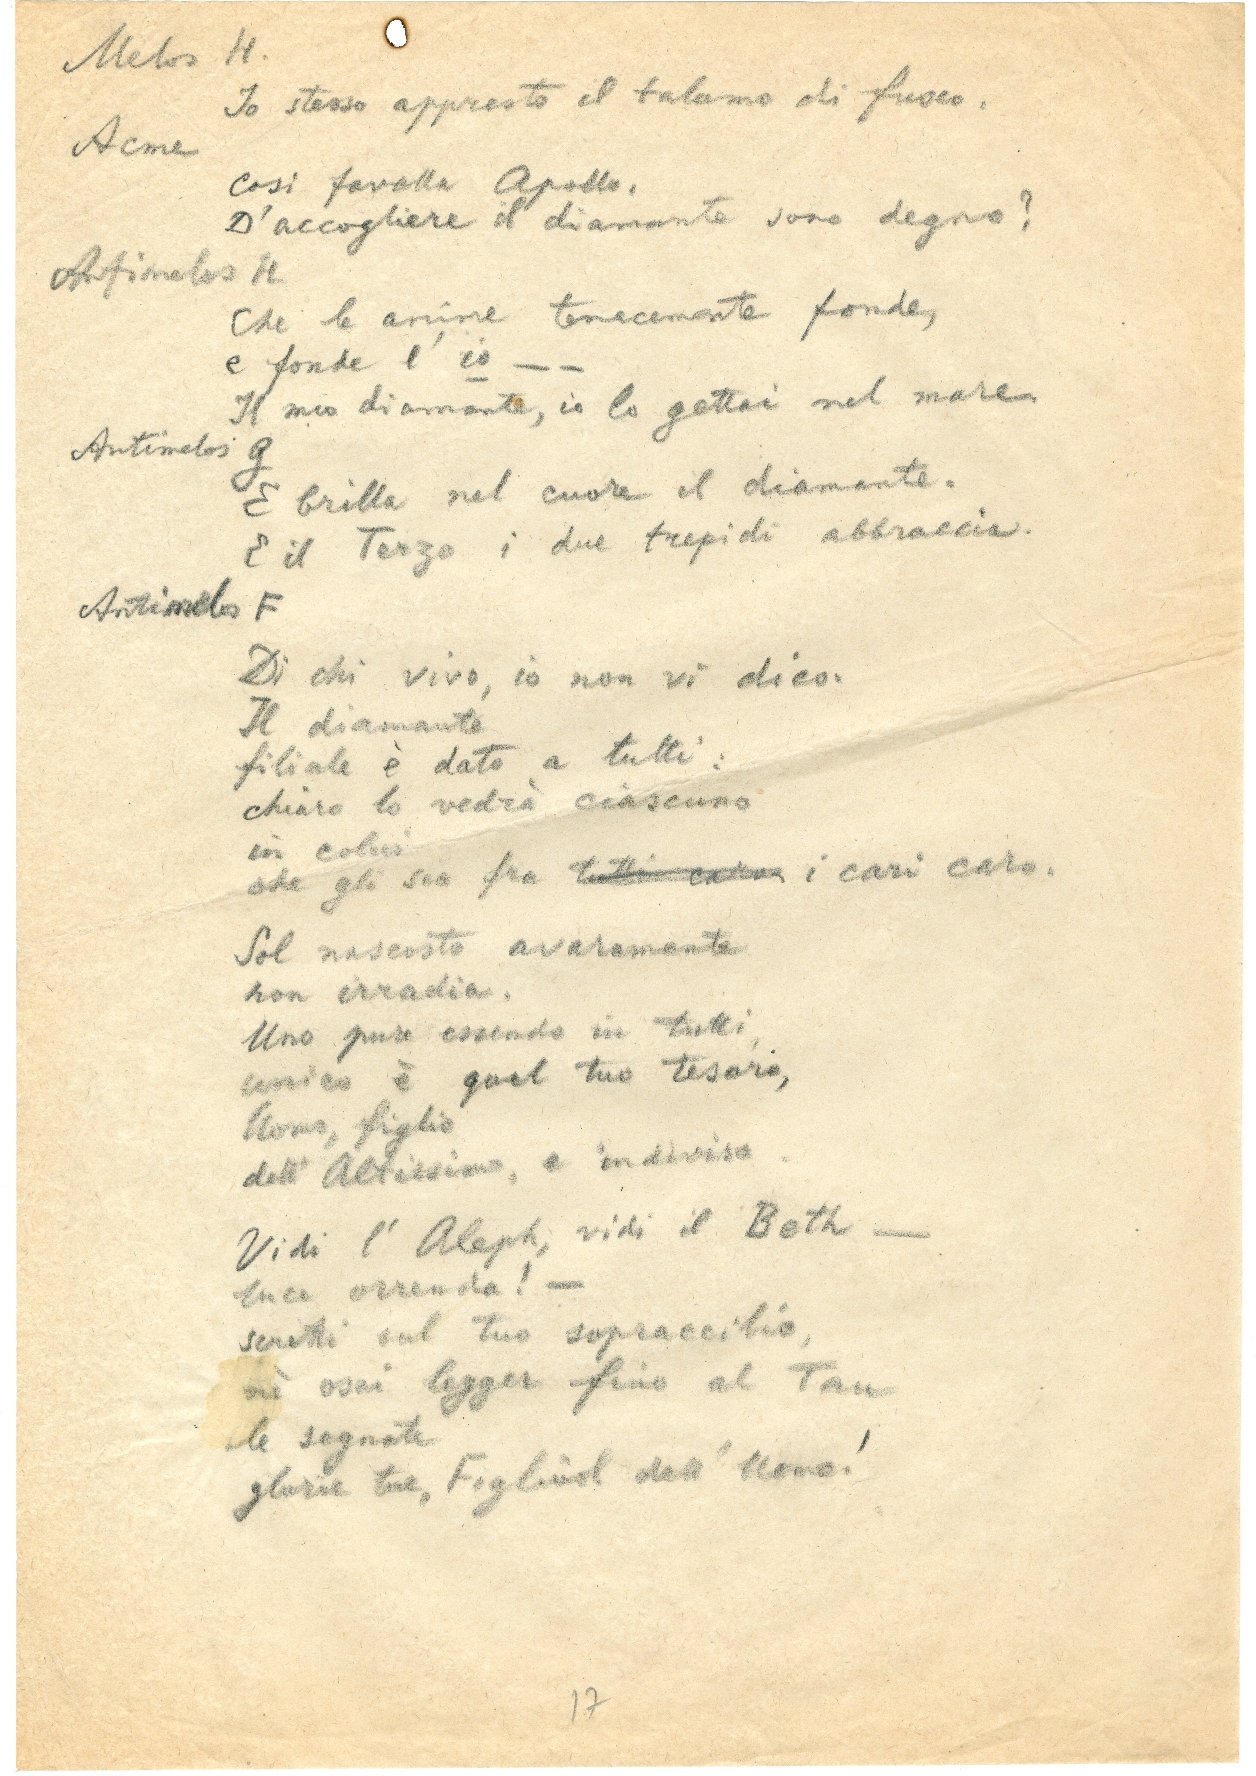 Melos H.
Io stesso appresto il talamo di fuoco.
Acme
Così favella Apollo.
D'accogliere il diamante sono degno?
Antimelos H
Che le anime tenacemente fonde,
e fonde l'io — —
Il mio diamante, io lo gettai nel mare.
Antimelos g
E brilla nel cuore il diamante.
E il Terzo i due trepidi abbraccia.
Antimelos F
Di chi vivo, io non vi dico.
Il diamante
filiale è dato a tutti:
chiaro lo vedrà ciascuno
in colui
che gli sia fra tutti caro i cari caro.
Sol nascosto avaramente
non irradia.
Uno pure essendo in tutti,
unico è quel tuo tesoro,
Uomo, figlio
dell'Altissimo, e indiviso.
Vidi l'Aleph, vidi il Beth —
luce orrenda! —
scritti sul tuo sopracciliο,
nè osai legger fino al Tau
le segnate
glorie tue, Figliuol dell'Uomo!
17